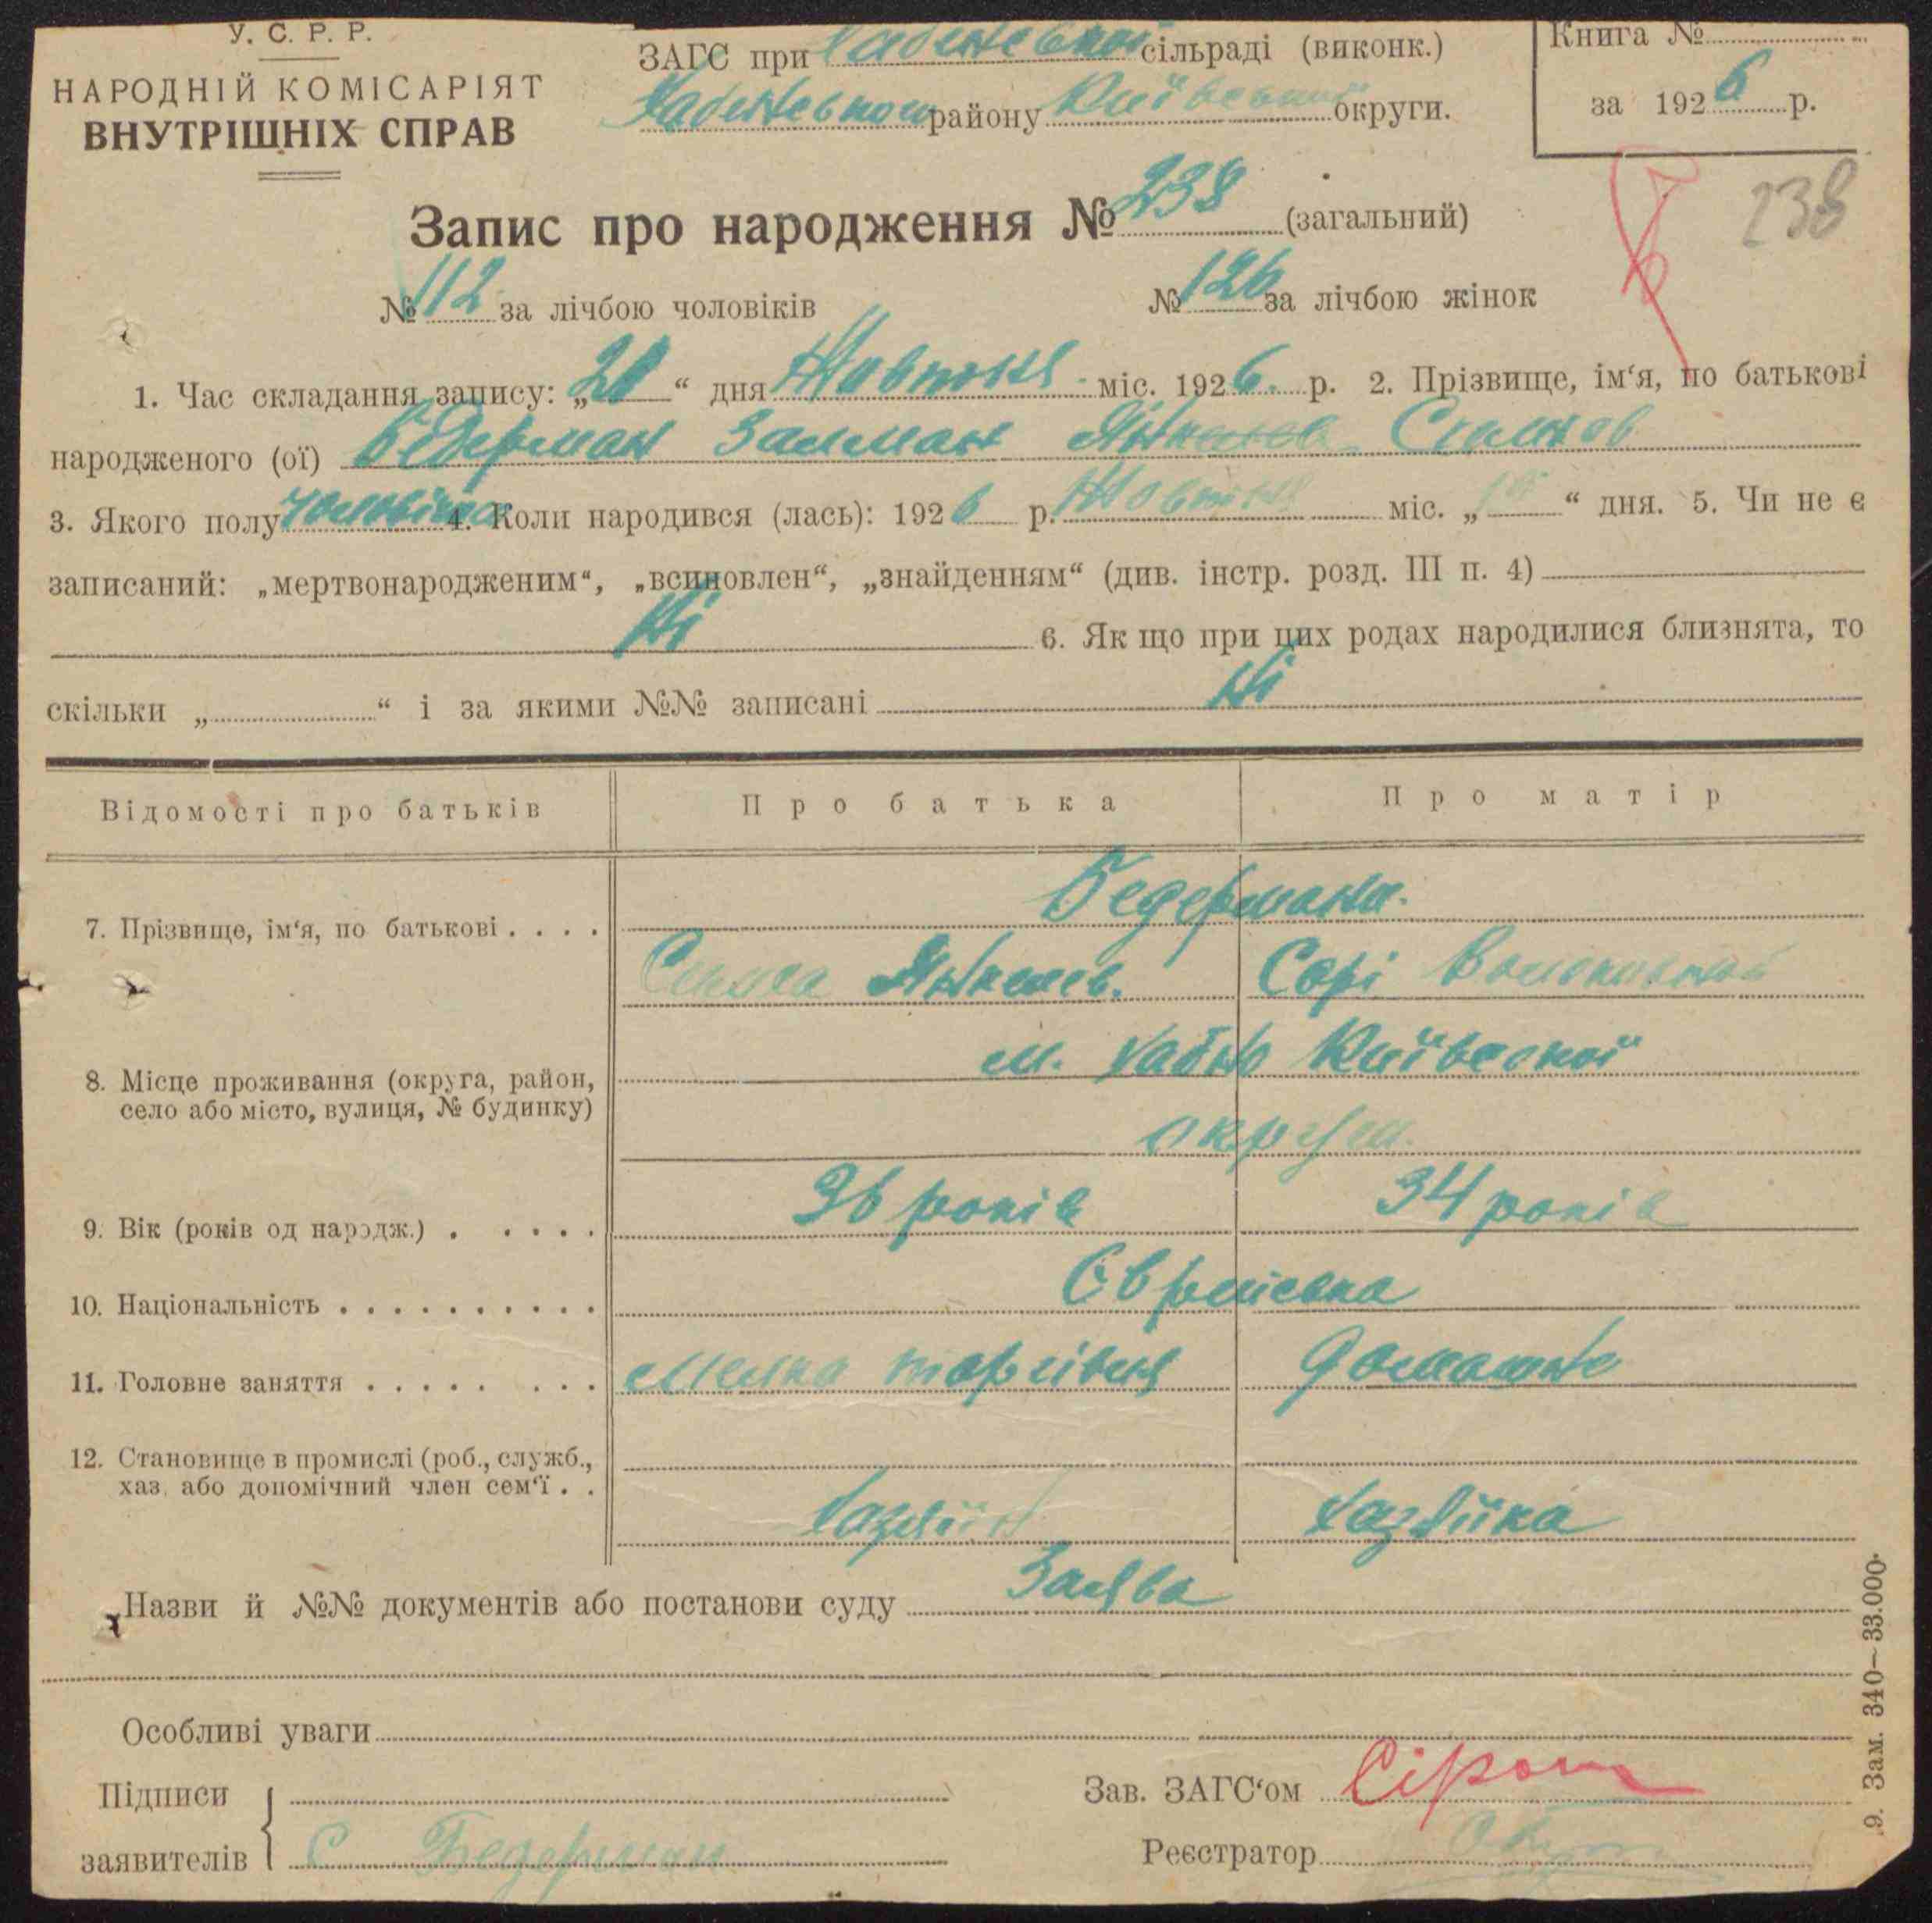 У. С. Р. Р.
НАРОДНІЙ КОМІСАРІЯТ
ВНУТРІШНІХ СПРАВ
ЗАГС при Хабенської сільраді (виконк.)
Хабенського району Київської округи.
Книга №
за 1926 р.
Запис про народження № 238 (загальний)
238
№ 112 за лічбою чоловіків № 126 за лічбою жінок
1. Час складання запису: „ “ дня Жовтня міс. 1926. р. 2. Прізвище, ім‘я, по батькові
народженого (ої) Бедерман Залман
3. Якого полу 4. Коли народився (лась): 1926 р. Жовтня міс. „ “ дня. 5. Чи не є
записаний: „мертвонародженим“, „всиновлен“, „знайденням“ (див. інстр. розд. III п. 4)
Ні 6. Як що при цих родах народилися близнята, то
скільки „ “ і за якими №№ записані Ні
Відомості про батьків Про батька Про матір
7. Прізвище, ім‘я, по батькові . . . . Бедермана.
Янкелев. Сорі
8. Місце проживання (округа, район, м. Хабно Київської
село або місто, вулиця, № будинку)
округи.
9. Вік (років од народж.) . . . . . 36 років 34 років
10. Національність . . . . . . . . . . Євреієвка
11. Головне заняття . . . . . . . . Мелка торгівля Домашнє
12. Становище в промислі (роб., служб.,
хаз. або допомічний член сем‘ї . . Хазяїн Хазяйка
Назви й №№ документів або постанови суду Заява
Особливі уваги
Підписи
заявителів С Бедерман
Зав. ЗАГС‘ом
Реєстратор
9. Зам. 340—33.000.